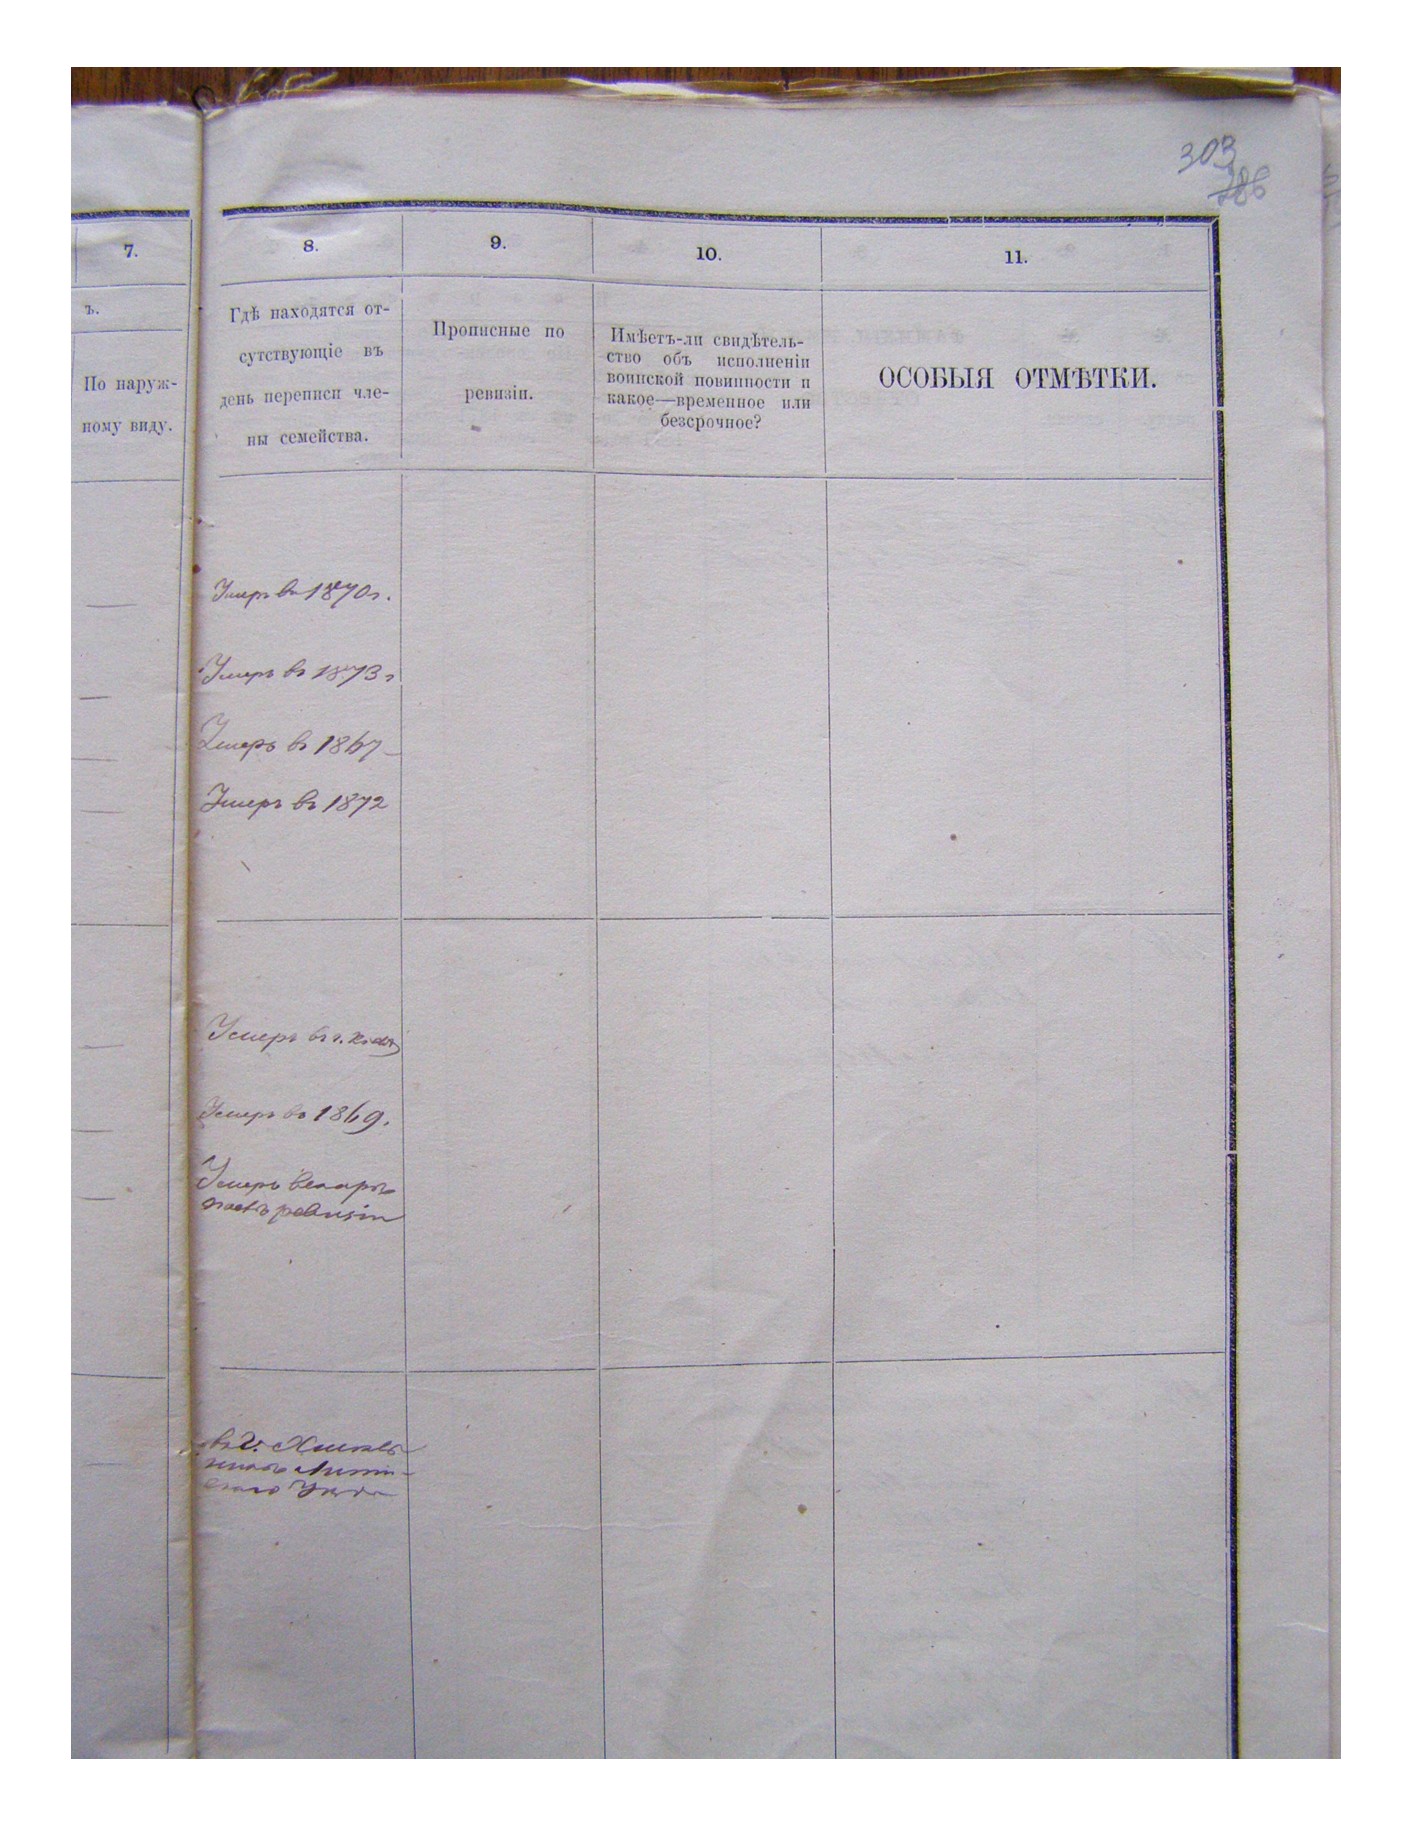 303
286
7.
8.
9.
10.
11.
ъ.
По наруж-
ному виду.
Гдѣ находятся от-
сутствующіе въ
день переписи чле-
ны семейства.
Прописные по
ревизіи.
Имѣетъ-ли свидѣтель-
ство объ исполненіи
воинской повинности и
какое—временное или
безсрочное?
ОСОБЫЯ ОТМѢТКИ.
Умеръ въ 1870 г.
Умеръ въ 1873 г
Умеръ въ 1867
Умеръ въ 1872
Умеръ въ г.
Умеръ въ 1869.
Умеръ
ревизіи
въ г. Хмѣль
никъ Литин-
скаго Уѣзда